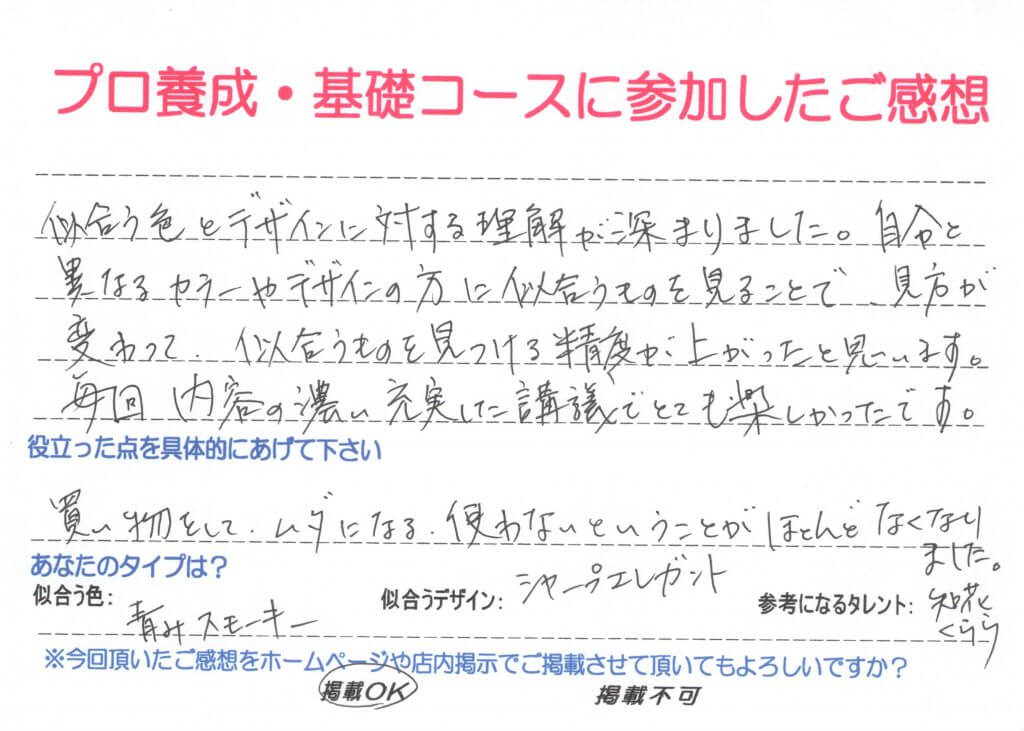 プロ養成・基礎コースに参加したご感想
似合う色とデザインに対する理解が深まりました。自分と
異なるカラーやデザインの方に似合うものを見ることで、見方が
変わって、似合うものを見つける精度が上がったと思います。
毎回、内容の濃い充実した講議でとても楽しかったです。
役立った点を具体的にあげて下さい
買い物をして、ムダになる、使わないということがほとんどなくなり
ました。
あなたのタイプは?
似合う色: 青みスモーキー
似合うデザイン: シャープエレガント
参考になるタレント: 知花
くらら
※今回頂いたご感想をホームページや店内掲示でご掲載させて頂いてもよろしいですか?
掲載OK 掲載不可